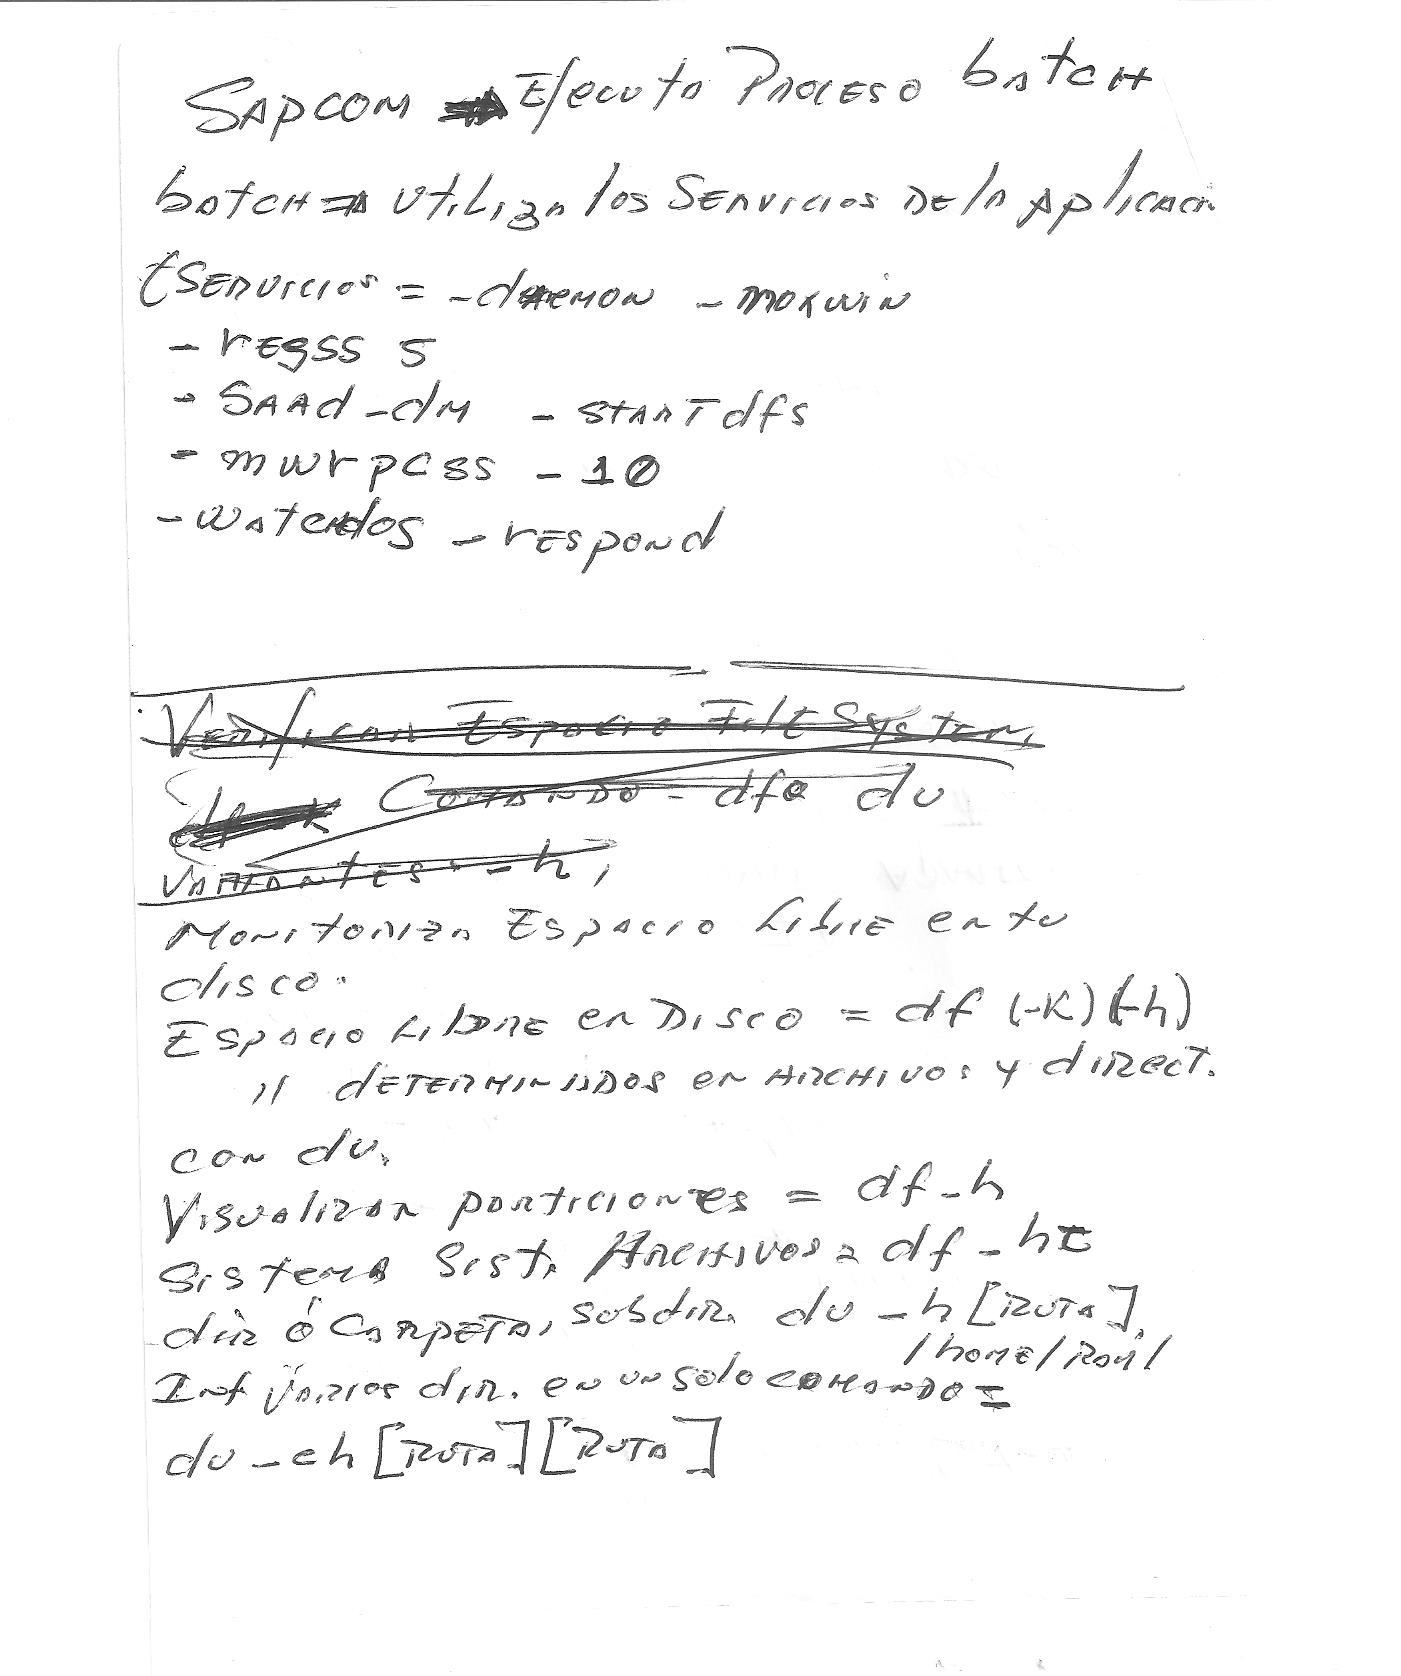 SAPCOM ⇒ Ejecuta Proceso batch
batch ⇒ utiliza los Servicios De la Aplicación
Servicios = - daemon - moxwin
- regss 5
- SAAd - dm - START dfs
- mwrpcss - 10
- watchdog - respond
Verificar Espacio File System
Comando - df o du
Variantes: -h,
Monitoriza Espacio Libre en tu
disco.
Espacio Libre en Disco = df (-k) (-h)
" determinados en archivos y direct.
con du.
Visualizar particiones = df -h
Sistema Sist. Archivos = df - ht
dir ó Carpeta, subdir. du -h [Ruta]
/home/Raul/
Inf varios dir. en un solo comando =
du -ch [Ruta] [Ruta]